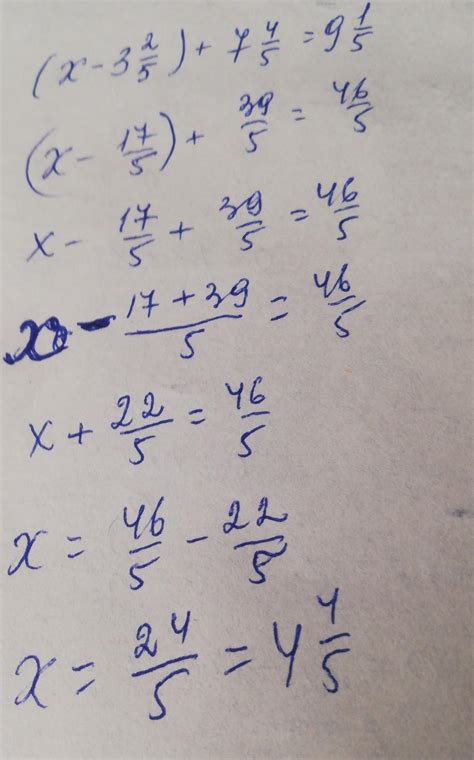 (x - 3 2/5) + 7 4/5 = 9 1/5
(x - 17/5) + 39/5 = 46/5
x - 17/5 + 39/5 = 46/5
x - (17 + 39)/5 = 46/5
x + 22/5 = 46/5
x = 46/5 - 22/5
x = 24/5 = 4 4/5